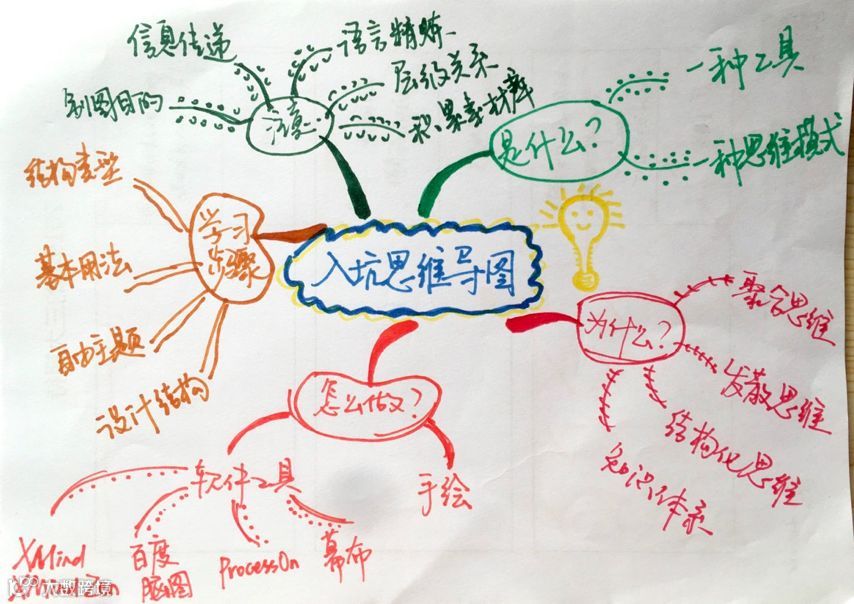 入坑思维导图
是什么?
一种工具
一种思维模式
为什么?
聚合思维
发散思维
结构化思维
知识体系
怎么做?
手绘
软件工具
XMind
百度
脑图
ProcessOn
幕布
学习
步骤
结构类型
基本用法
自由主题
设计结构
注意
信息传递
制图目的
语言精炼
层级关系
积累素材库
大数跨境